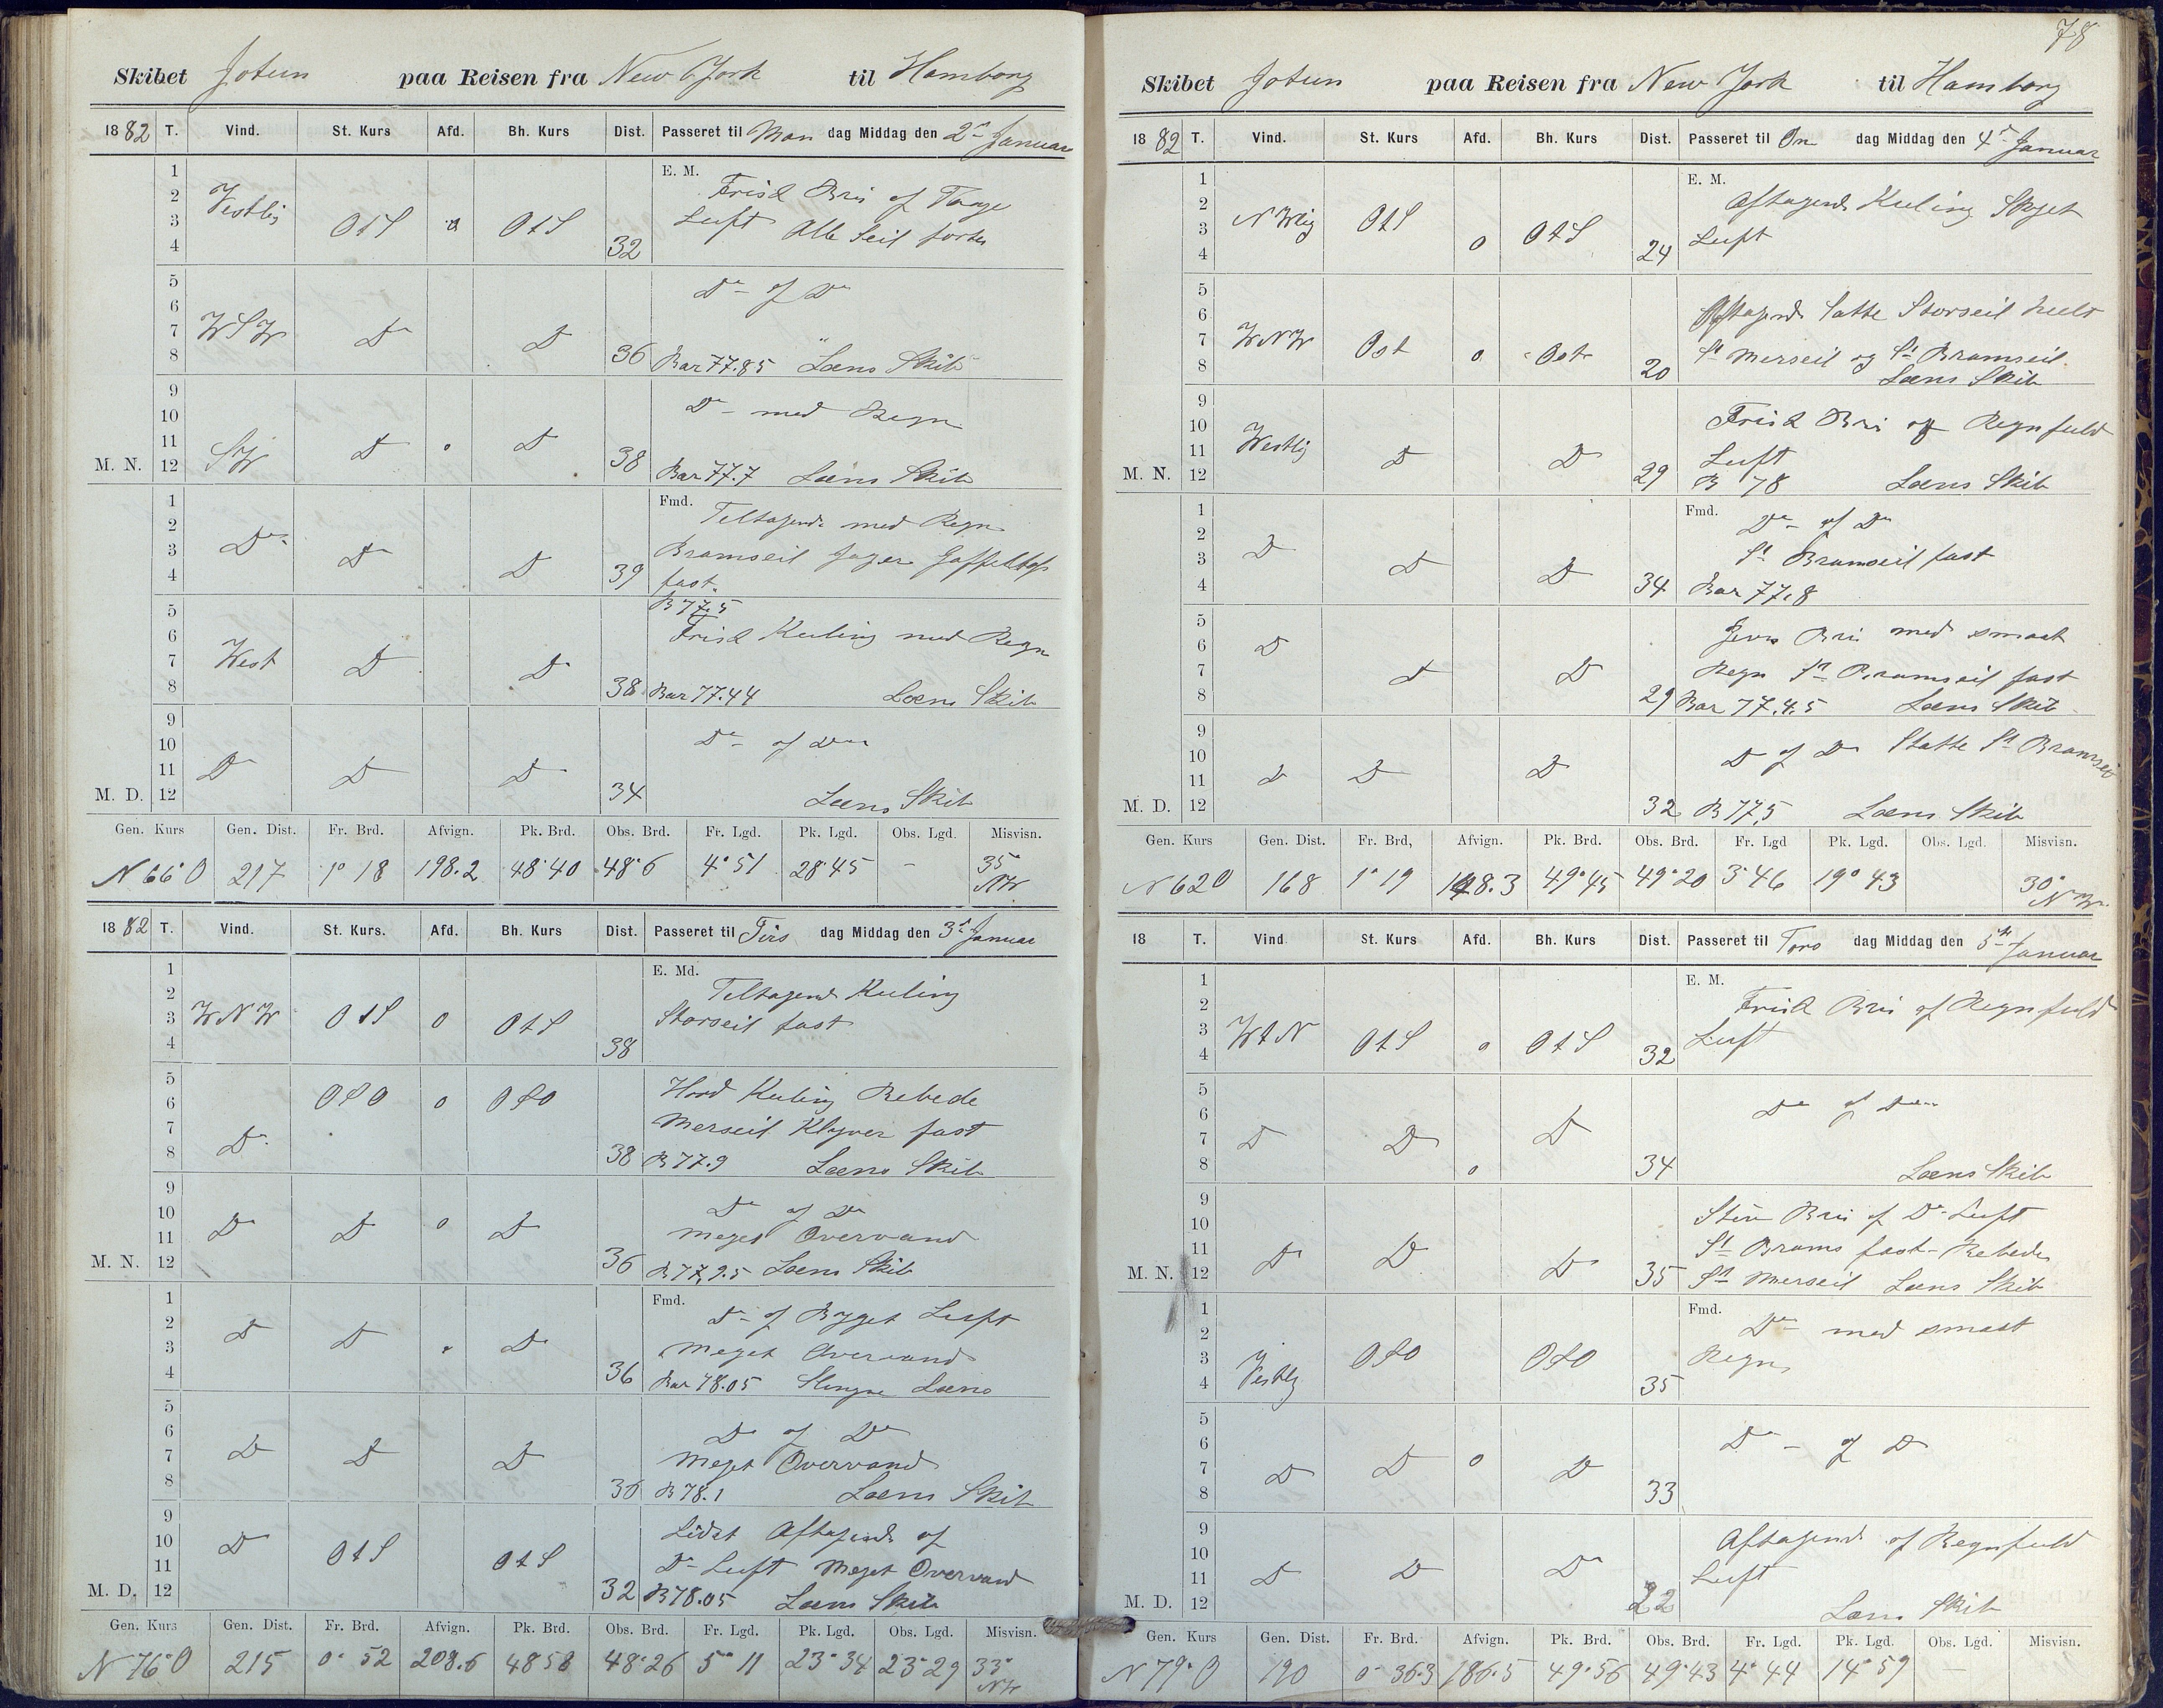 Skibet Jotun paa Reisen fra New York til Hamborg
1882 T. Vind. St. Kurs Afd. Bh. Kurs Dist. Passeret til Man dag Middag den 2n Januar
1 E. M.
2 Frisk Bris og Taage
3 Vestlig OtS o OtS Luft Alle Seil forter
4 32
5 Do of Do
6
7 WSW Do D
8 36 Bar 77.85 Læns Skib
9
10 Do med Regn
11 SW D o D
M. N. 12 38 Bar 77.7 Læns Skib
1 Fmd.
2 Tiltagende med Regn
3 Do Do D Bramseil Jager Gaffeltop
4 39 fast.
5 B 77.5
6 Frisk Kuling med Regn
7 West D D
8 38 Bar 77.44 Læns Skib
9
10 Do of Do
11 D D D
M. D. 12 34 Læns Skib
Gen. Kurs Gen. Dist. Fr. Brd. Afvign. Pk. Brd. Obs. Brd. Fr. Lgd. Pk. Lgd. Obs. Lgd. Misvisn.
N 66° O 217 1° 18 198.2 48° 40 48° 6 4° 51 28° 45 — 35° NW
1882 T. Vind. St. Kurs. Afd. Bh. Kurs Dist. Passeret til Tirs dag Middag den 3n Januar
1 E. Md.
2 Tiltagende Kuling
3 WNW OtS o OtS Storseil fast
4 38
5
6 OSO o OSO Haard Kuling Rebede
7 Merseil Klyver fast
8 Do 38 B 77.9 Læns Skib
9
10 Do of Do
11 D D o D Meget Overvand
M. N. 12 36 B 77,9.5 Læns Skib
1 Fmd.
2 Do of Bygget Luft
3 D D D Meget Overvand
4 36 Bar 78.05 Læns
5
6 Do of Do
7 D D D Meget Overvand
8 36 B 78.1 Læns Skib
9
10 D OtS OtS Lidet Aftagende of
11 Do Luft Meget Overvand
M. D. 12 32 B 78.05 Læns Skib
Gen. Kurs Gen. Dist. Fr. Brd. Afvign. Pk. Brd. Obs. Brd. Fr. Lgd. Pk. Lgd. Obs. Lgd. Misvisn.
N 76° O 215 0° 52 208.6 48 58 48° 26 5° 11 23° 34 23° 29 33° NW
78
Skibet Jotun paa Reisen fra New York til Hamborg
1882 T. Vind. St. Kurs Afd. Bh. Kurs Dist. Passeret til On dag Middag den 4n Januar
1 E. M.
2 Aftagende Kuling Skyet
3 NWlig OtS o OtS Luft
4 24
5
6 Aftagende Satte Storseil heelt
7 WNW Ost o Ost St Merseil og St Bramseil
8 20 Læns Skib
9
10 Frisk Bris og Regnfuld
11 Westlig D D Luft
M. N. 12 29 B 78 Læns Skib
1 Fmd.
2 Do of Do
3 D D D St Bramseil fast
4 34 Bar 77.8
5
6 D Jevn Bris med smaat
7 D D Regn Sn Bramseil fast
8 29 Bar 77.4.5 Læns Skib
9
10 D of Do Satte Sn Bramseil
11 D D D
M. D. 12 32 B 77,5 Læns Skib
Gen. Kurs Gen. Dist. Fr. Brd, Afvign. Pk. Brd. Obs. Brd. Fr. Lgd Pk. Lgd. Obs. Lgd. Misvisn.
N 62 O 168 1° 19 148.3 49° 45 49° 20 3° 46 19° 43 30° NW
18 T. Vind St. Kurs Afd. Bh. Kurs Dist. Passeret til Tors dag Middag den 5te Januar
1 E. M.
2 Frisk Bris of Regnfuld
3 WtN OtS o OtS Luft
4 32
5
6 Do of Do
7 D D D
8 o 34 Læns Skib
9
10 Stiv Bris of Do Luft
11 D D D St Brams fast Rebede
M. N. 12 35 Sn Merseil Læns Skib
1 Fmd.
2 Do med smaat
3 Vestlig OSO OSO Regn
4 35
5
6 Do of D
7 D D o D
8 33
9
10 Aftagende of Regnfuld
11 D D D Luft
M. D. 12 22 Læns Skib
Gen. Kurs Gen. Dist. Fr. Brd. Afvign. Pk. Brd. Obs. Brd. Fr. Lgd. Pk. Lgd. Obs. Lgd. Misvisn.
N 79° O 190 0° 36.3 186.5 49° 56 49° 43 4° 44 14° 59 —